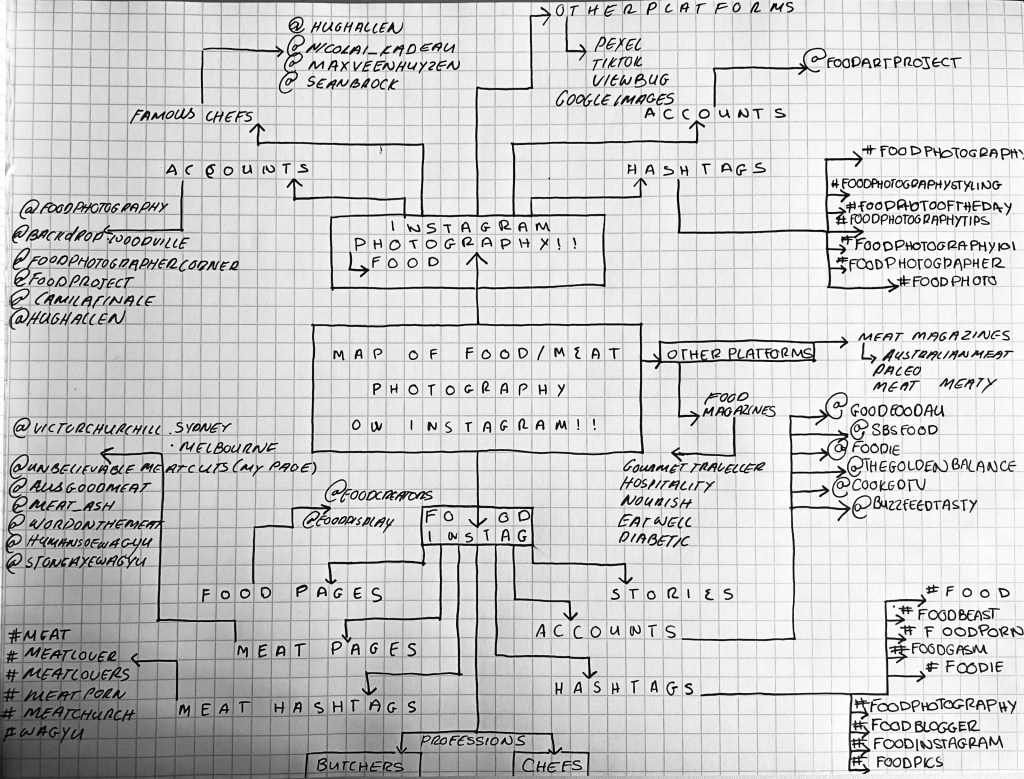 OTHER PLATFORMS
PEXEL
TIKTOK
VIEWBUG
GOOGLE IMAGES
@HUGHALLEN
@NICOLAI_KADEAU
@MAXVEENHUYZEN
@SEANBROCK
FAMOUS CHEFS
@FOODARTPROJECT
ACCOUNTS
ACCOUNTS
HASHTAGS
@FOODPHOTOGRAPHY
@BACKDROP_WOODVILLE
@FOODPHOTOGRAPHERCORNER
@FOODPROJECT
@CAMILAFINALE
@HUGHALLEN
#FOODPHOTOGRAPHY
#FOODPHOTOGRAPHYSTYLING
#FOODPHOTOOFTHEDAY
#FOODPHOTOGRAPHYTIPS
#FOODPHOTOGRAPHY101
#FOODPHOTOGRAPHER
#FOODPHOTO
INSTAGRAM
PHOTOGRAPHY!!
FOOD
MAP OF FOOD/MEAT
PHOTOGRAPHY
ON INSTAGRAM!!
OTHER PLATFORMS
MEAT MAGAZINES
AUSTRALIANMEAT
PALEO
MEAT MEATY
FOOD
MAGAZINES
GOURMET TRAVELLER
HOSPITALITY
NOURISH
EATWELL
DIABETIC
@GOODFOODAU
@SBSFOOD
@FOODIE
@THEGOLDENBALANCE
@COOKGOTV
@BUZZFEEDTASTY
@VICTORCHURCHILL.SYDNEY
·MELBOURNE
@UNBELIEVABLE MEATCUTS(MY PAGE)
@AUSGOODMEAT
@MEAT_ASH
@WORDONTHEMEAT
@HUMANSOFWAGYU
@STONEAXEWAGYU
@FOODCREATORS
@FOODDISPLAY
FOOD
INSTAG
FOOD PAGES
STORIES
MEAT PAGES
ACCOUNTS
MEAT HASHTAGS
HASHTAGS
#MEAT
#MEATLOVER
#MEATLOVERS
#MEATPORN
#MEATCHURCH
#WAGYU
#FOOD
#FOODBEAST
#FOODPORN
#FOODGASM
#FOODIE
#FOODPHOTOGRAPHY
#FOODBLOGGER
#FOODINSTAGRAM
#FOODPICS
PROFESSIONS
BUTCHERS
CHEFS